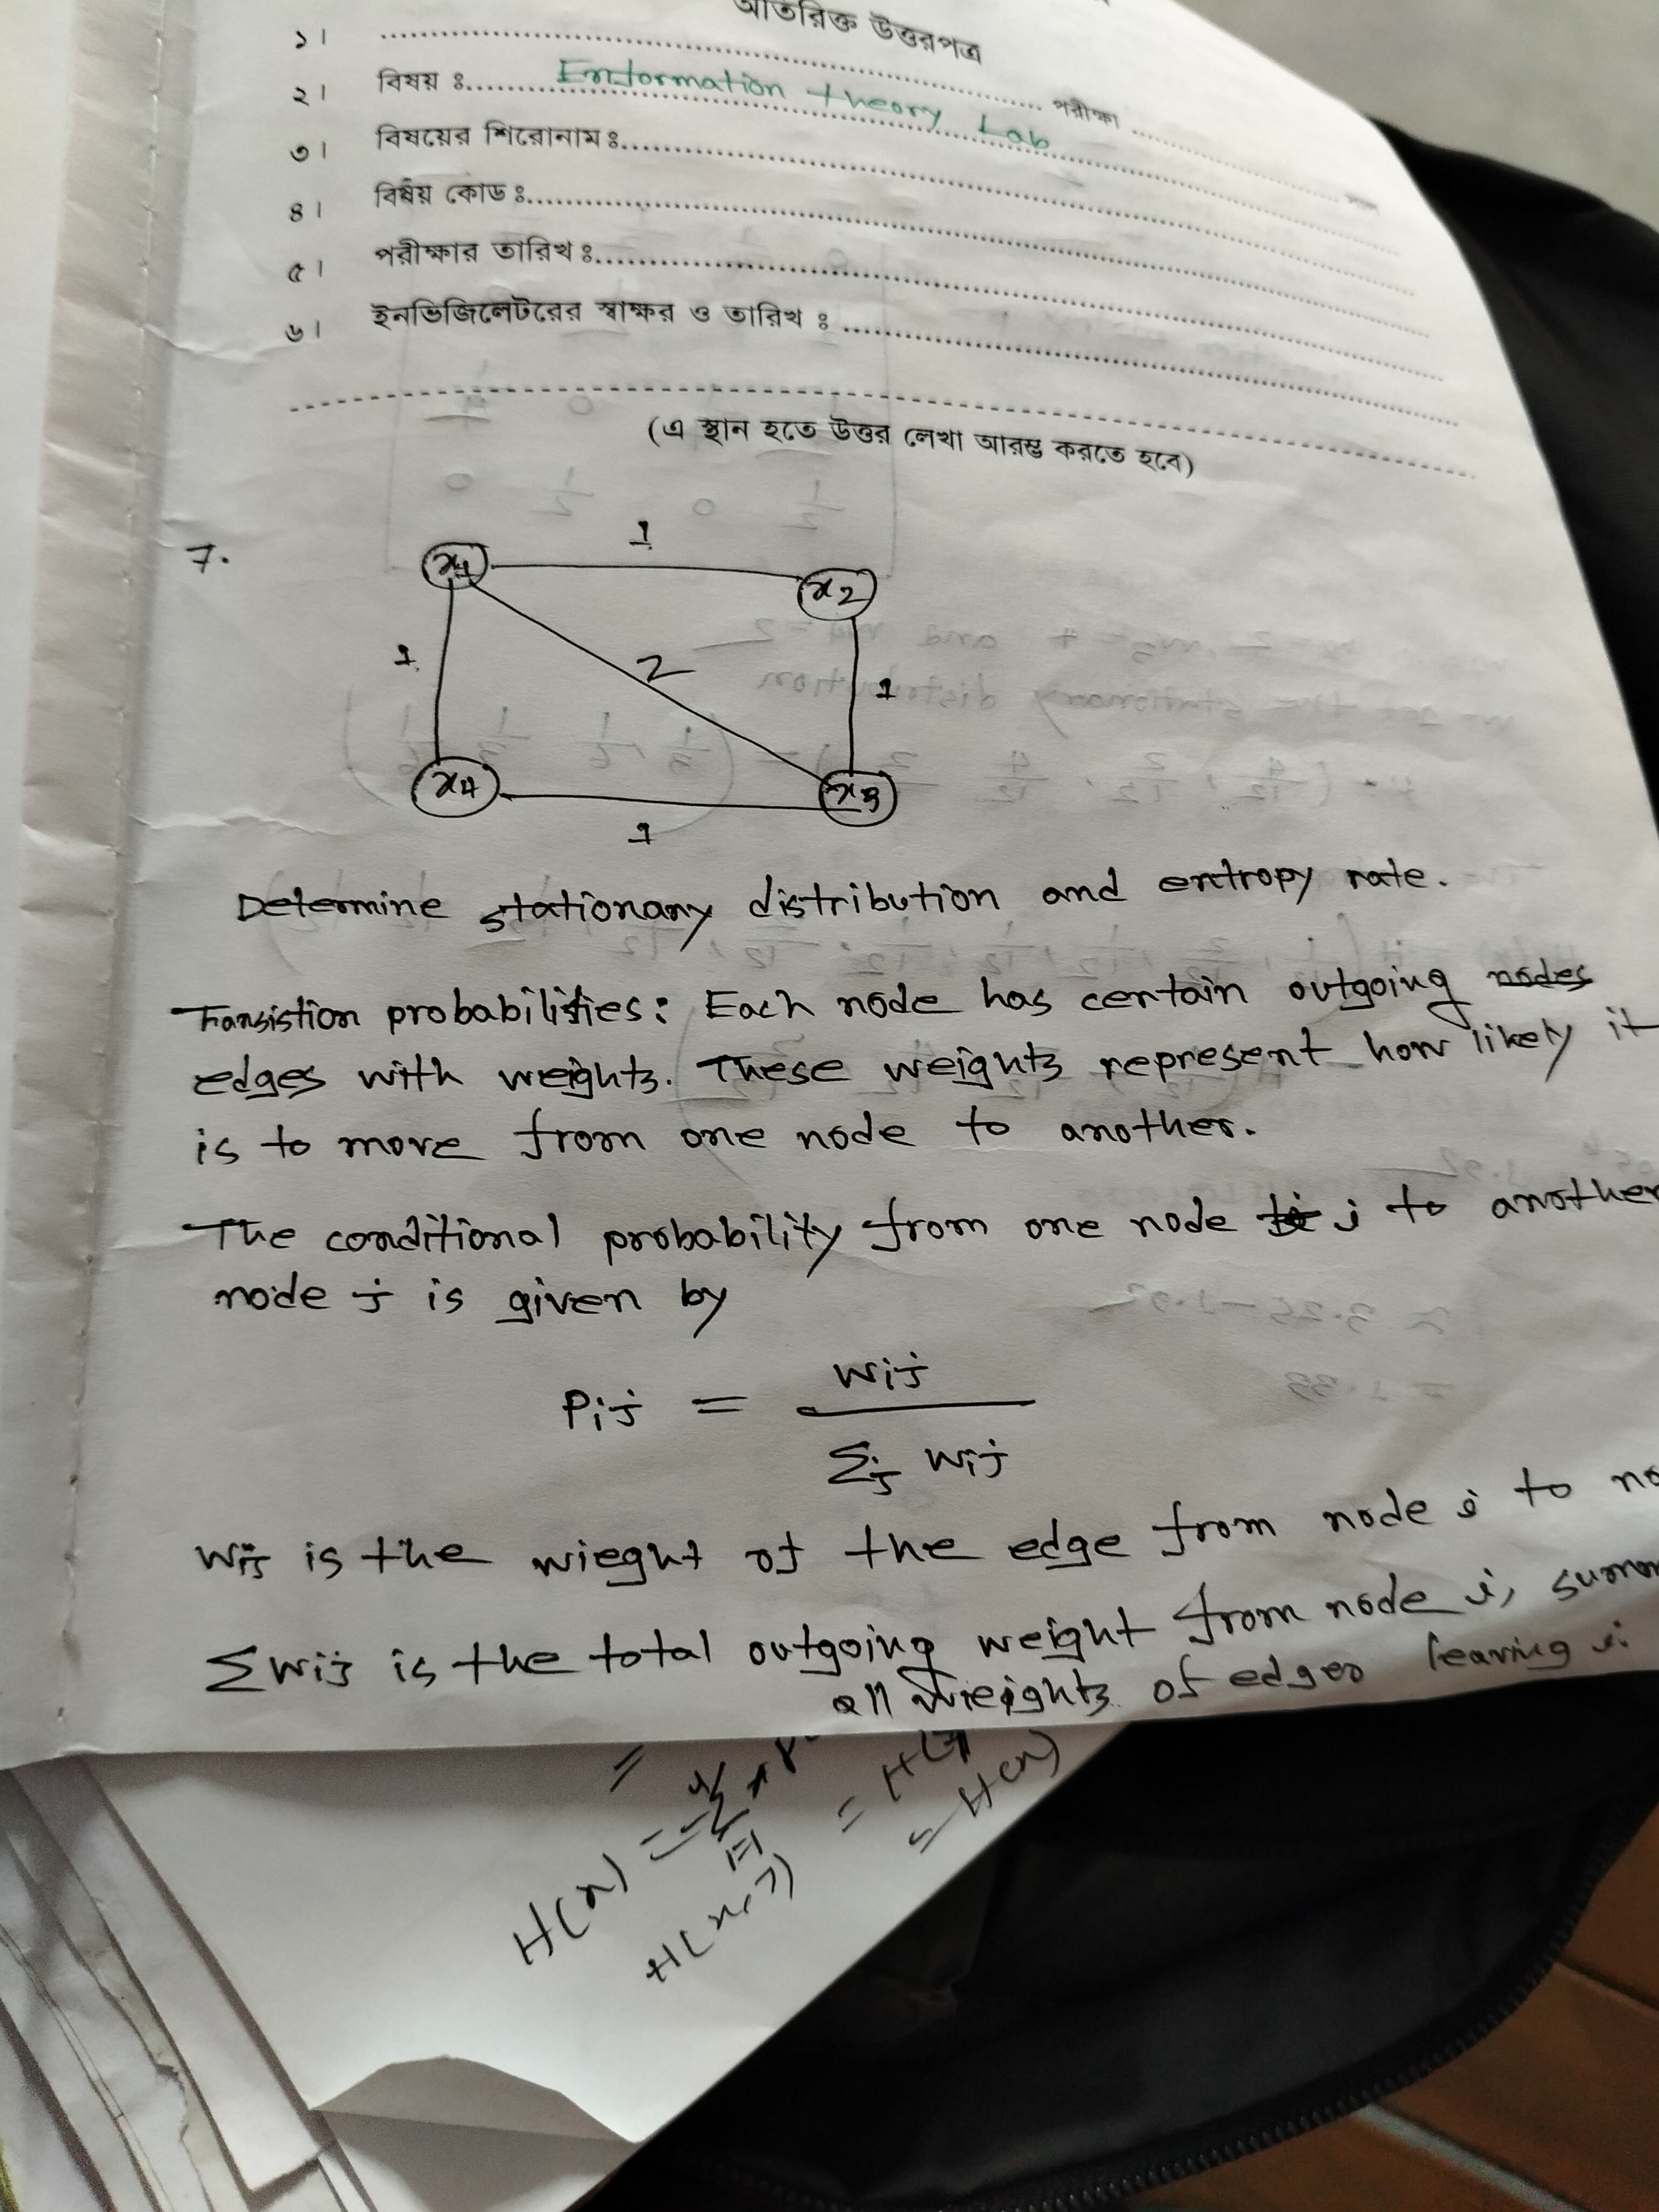 অতিরিক্ত উত্তরপত্র
১। ........ পরীক্ষা ........
২। বিষয় ঃ Information theory Lab
৩। বিষয়ের শিরোনাম ঃ
৪। বিষয় কোড ঃ
৫। পরীক্ষার তারিখ ঃ
৬। ইনভিজিলেটরের স্বাক্ষর ও তারিখ ঃ
(এ স্থান হতে উত্তর লেখা আরম্ভ করতে হবে)
7.
x1 1 x2
1 2 1
x4 1 x3
Determine stationary distribution and entropy rate.
Transistion probabilities: Each node has certain outgoing nodes
edges with weights. These weights represent how likely it
is to move from one node to another.
The conditional probability from one node i to another
node j is given by
Pij = Wij / Σj Wij
Wij is the wieght of the edge from node i to
ΣWij is the total outgoing weight from node i,
all wieights of edges leaving i.
=
H(x) = -Σ
H(x,y) = H(
= H(x)